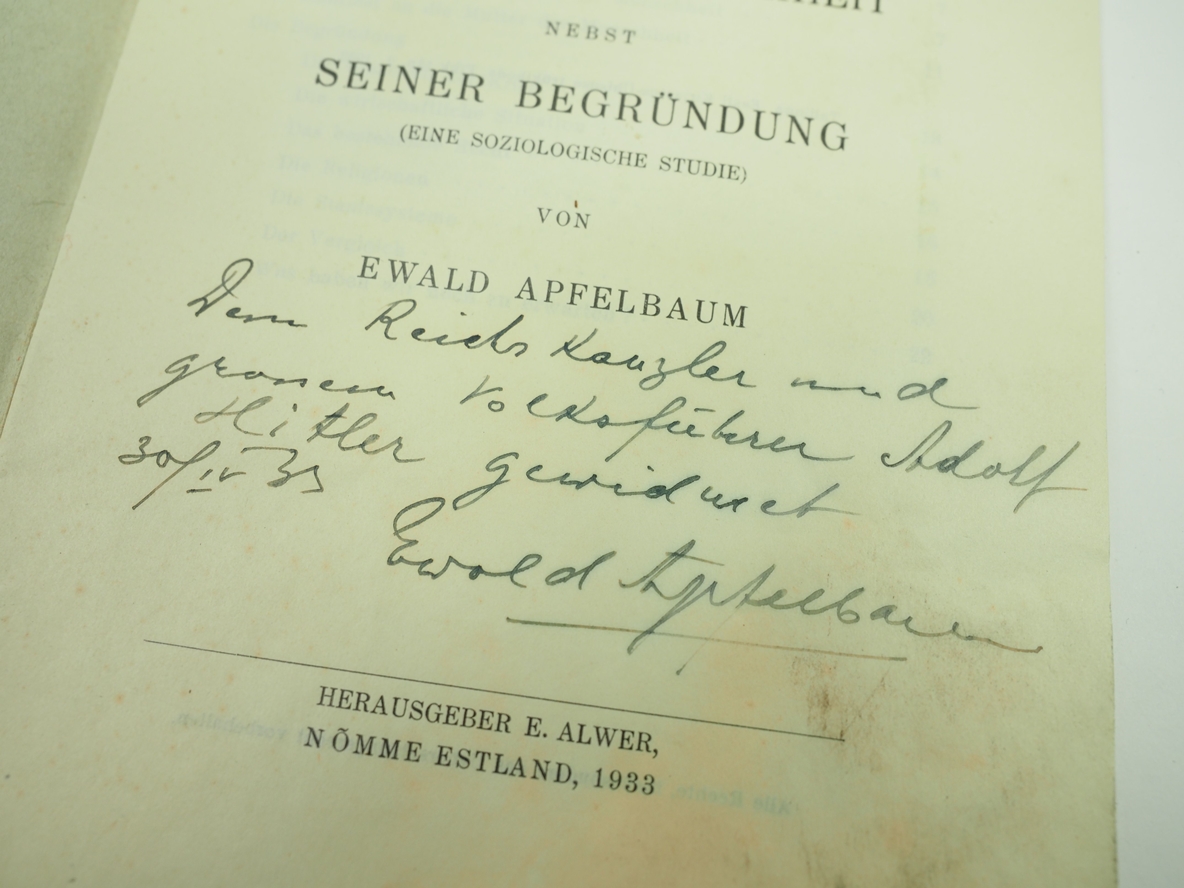 NEBST
SEINER BEGRÜNDUNG
(EINE SOZIOLOGISCHE STUDIE)
VON
EWALD APFELBAUM
Dem Reichskanzler und
grossem Volksführer Adolf
Hitler gewidmet
30/IV 33
Ewald Apfelbaum
HERAUSGEBER E. ALWER,
NÕMME ESTLAND, 1933